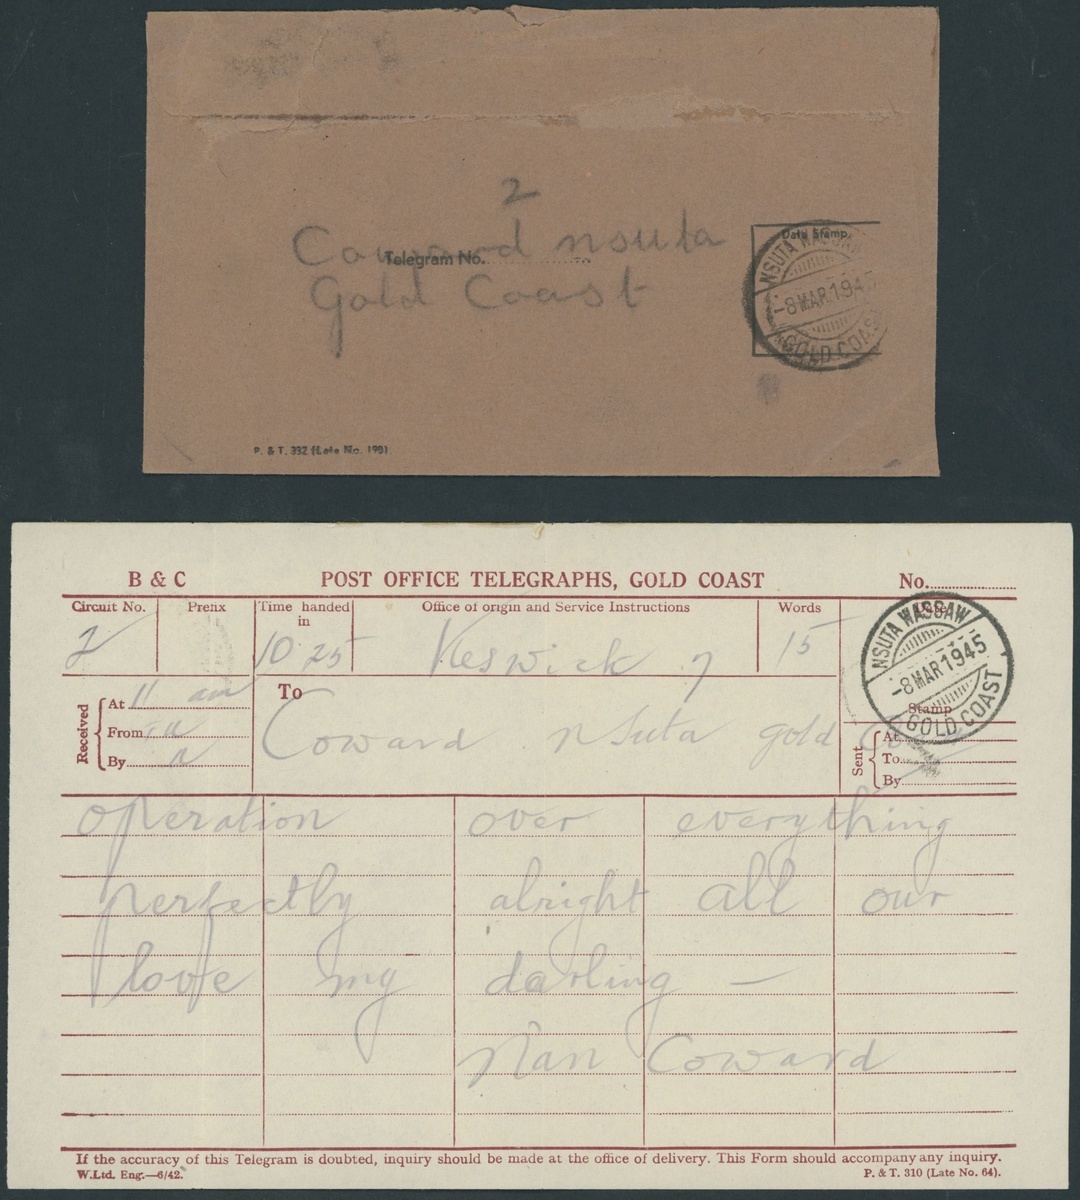 2
Coward nsuta
Telegram No.
Gold Coast
Date Stamp.
NSUTA WASSAW
-8 MAR 194
GOLD COAS
P. & T. 332 (Late No. 199)
B & C
POST OFFICE TELEGRAPHS, GOLD COAST
No.
Circuit No.
Prefix
Time handed in
Office of origin and Service Instructions
Words
2
10 25
Keswick 7
15
NSUTA WASSAW
-8 MAR 1945
GOLD COAST
Stamp
Received
At 11 am
From
By a
To
Coward nsuta gold Co
Sent
At
To
By
operation over everything
perfectly alright all our
love my darling —
Nan Coward
If the accuracy of this Telegram is doubted, inquiry should be made at the office of delivery. This Form should accompany any inquiry.
W.Ltd. Eng.—6/42.
P. & T. 310 (Late No. 64).